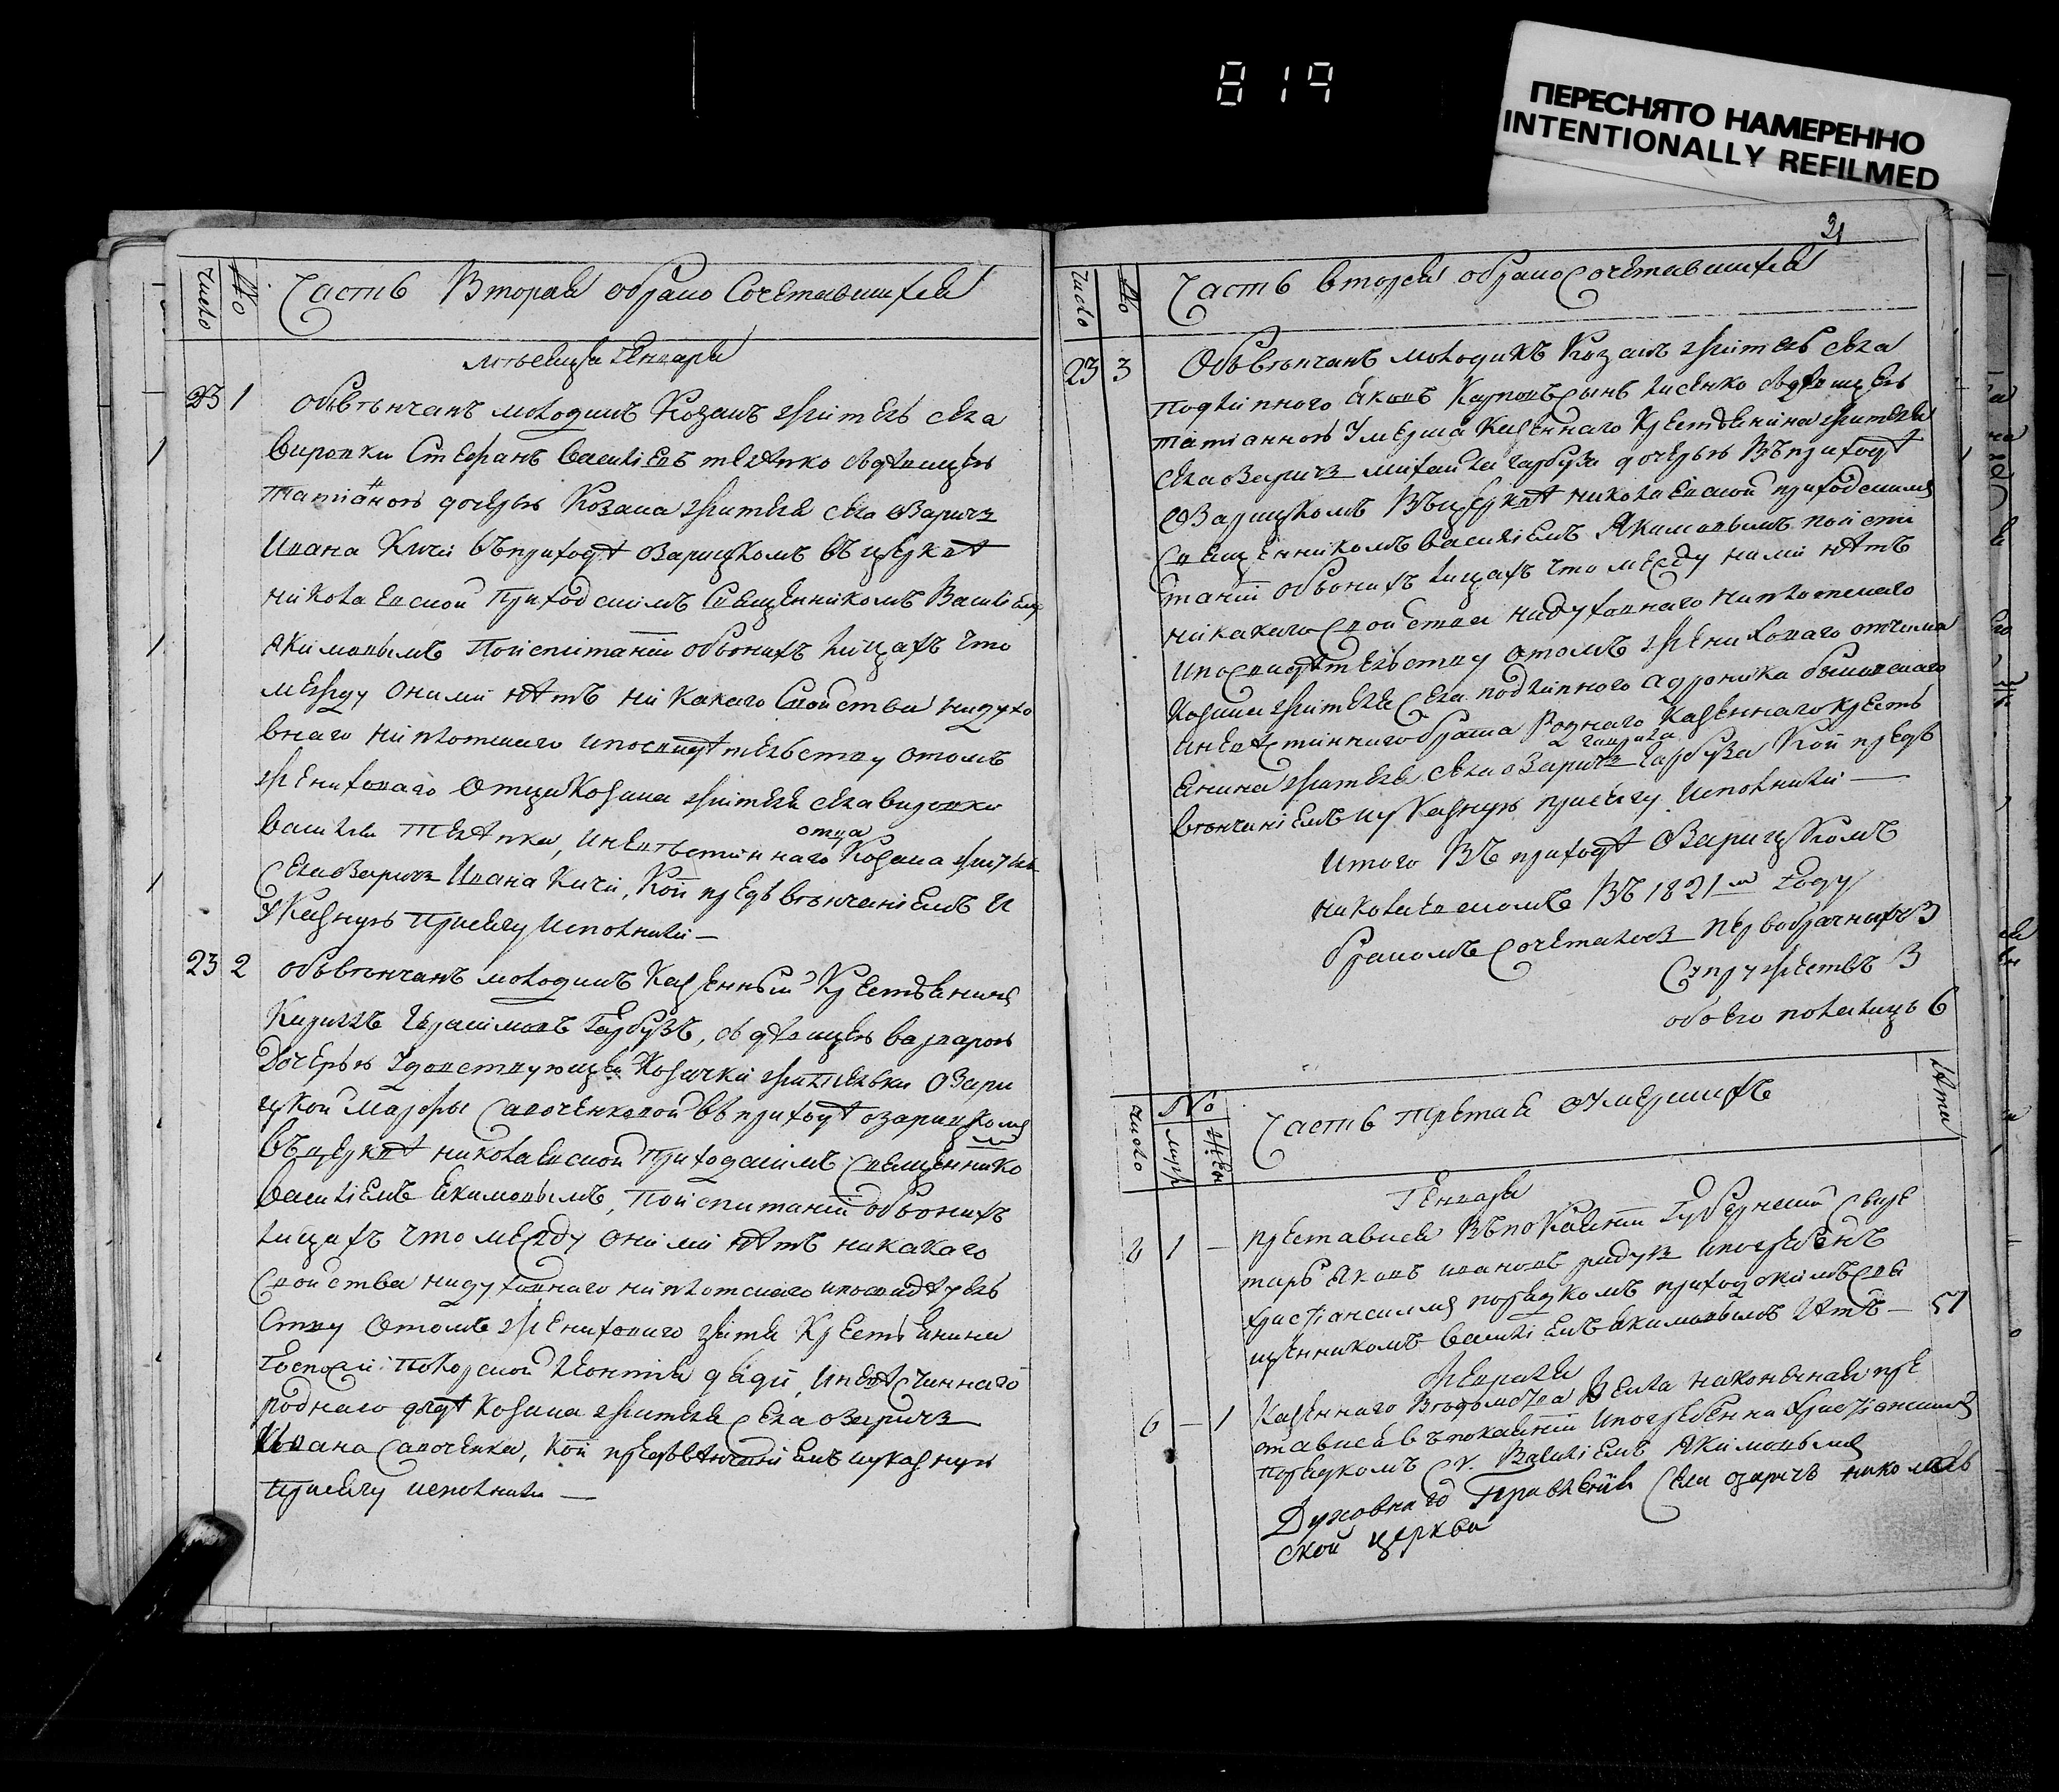 819
ПЕРЕСНЯТО НАМЕРЕННО
INTENTIONALLY REFILMED
число
№
Часть Вторая обрано Сочетавшихся
мѣсяца Генваря
23 1 обвѣнчанъ молодикъ Козакъ житель села
Вировки Стефанъ Василіевъ сдѣвицею
татіаною дочерью Козака жителя села Озаричъ
Ивана Кичи въприходѣ Озарицкомъ въ церквѣ
николаевской Приходскимъ Священникомъ Василіемъ
Якимовымъ Поиспитаніи обоонихъ лицахъ что
между оними нѣтъ ни какаго Свойства нидухо
внаго ни плотскаго ипосвидѣтельству отомъ
женихового отца Козака жителя села вировки
Василія, иневѣстиннаго отца Козака жителя
Села Озаричъ Ивана Кичи, Кои предъ вѣнчаніемъ И
Указную Присягу Исполнили —
23 2 обвѣнчанъ молодикъ Казенный Крестьянинъ
Кирилъ Герасимовъ Гарбузъ, сдѣвицею варварою
Дочерью вдовствующей Козачки жительки Озари
цкой Марфы Савоченковой въ приходѣ озарицкомъ
въ церквѣ николаевской приходскимъ Священнико
мъ
Василіемъ Екимовымъ, Поиспитаніи обоонихъ
лицахъ что между оними нѣтъ никакаго
Свойства нидуховнаго ниплотскаго ипосвидѣтель
ству Отомъ женихового зятя Крестьянина
Госпожи Леонтія, иневѣстиннаго
роднаго дядѣ Козака жителя Села озаричъ
Ивана Савоченка, кои предъвѣнчаніемъ иуказную
присягу исполнили —
31
число
№
Часть вторая обрано Сочетавшихся
23 3 Обвѣнчанъ молодикъ Козакъ житель села
подлипного Яковъ Карповъ сынъ Лисенко сдѣвицею
татіанною Умерша Казеннаго Крестьянина жителя
села Озаричъ Михаила гарбуза дочерью Въприходѣ
Озарицкомъ Въцерквѣ николаевской приходскимъ
Священникомъ Василіемъ Якимовымъ поиспи
таніи обоонихъ лицахъ что между ними нѣтъ
никакаго Свойства нидуховнаго ниплотскаго
ипосвидѣтельству отомъ женихового отчима
Козака жителя Села подлипного
иневѣстиннаго брата Роднаго Казеннаго кресть
янина жителя села озаричъ гаврила Гарбуза Кои предъ
вѣнчаніемъ иуКазную присягу Исполнили —
Итого Въ приходѣ Озарицкомъ
николаевскомъ Въ 1821м Году
бракомъ Сочеталось первобрачнихъ 3
Супружествъ 3
обоего пола лицъ 6
число
№
муж
жен
Часть третая оумершихъ
Лѣти
Генваря
1 — преставися Въпокаяніи Губернскій Секре
таръ Яковъ ивановъ ипогребенъ
христіанскимъ порядкомъ приходскимъ Свя
щенникомъ Василіемъ Якимовымъ лѣтъ — 51
февраля
6 — 1 Казеннаго наконечная пре
ставися въпокаяніи ипогребенна христіанскимъ
порядкомъ С. Василіемъ Якимовымъ
Духовнаго Правленія Села озаричъ николаев
ской церкви